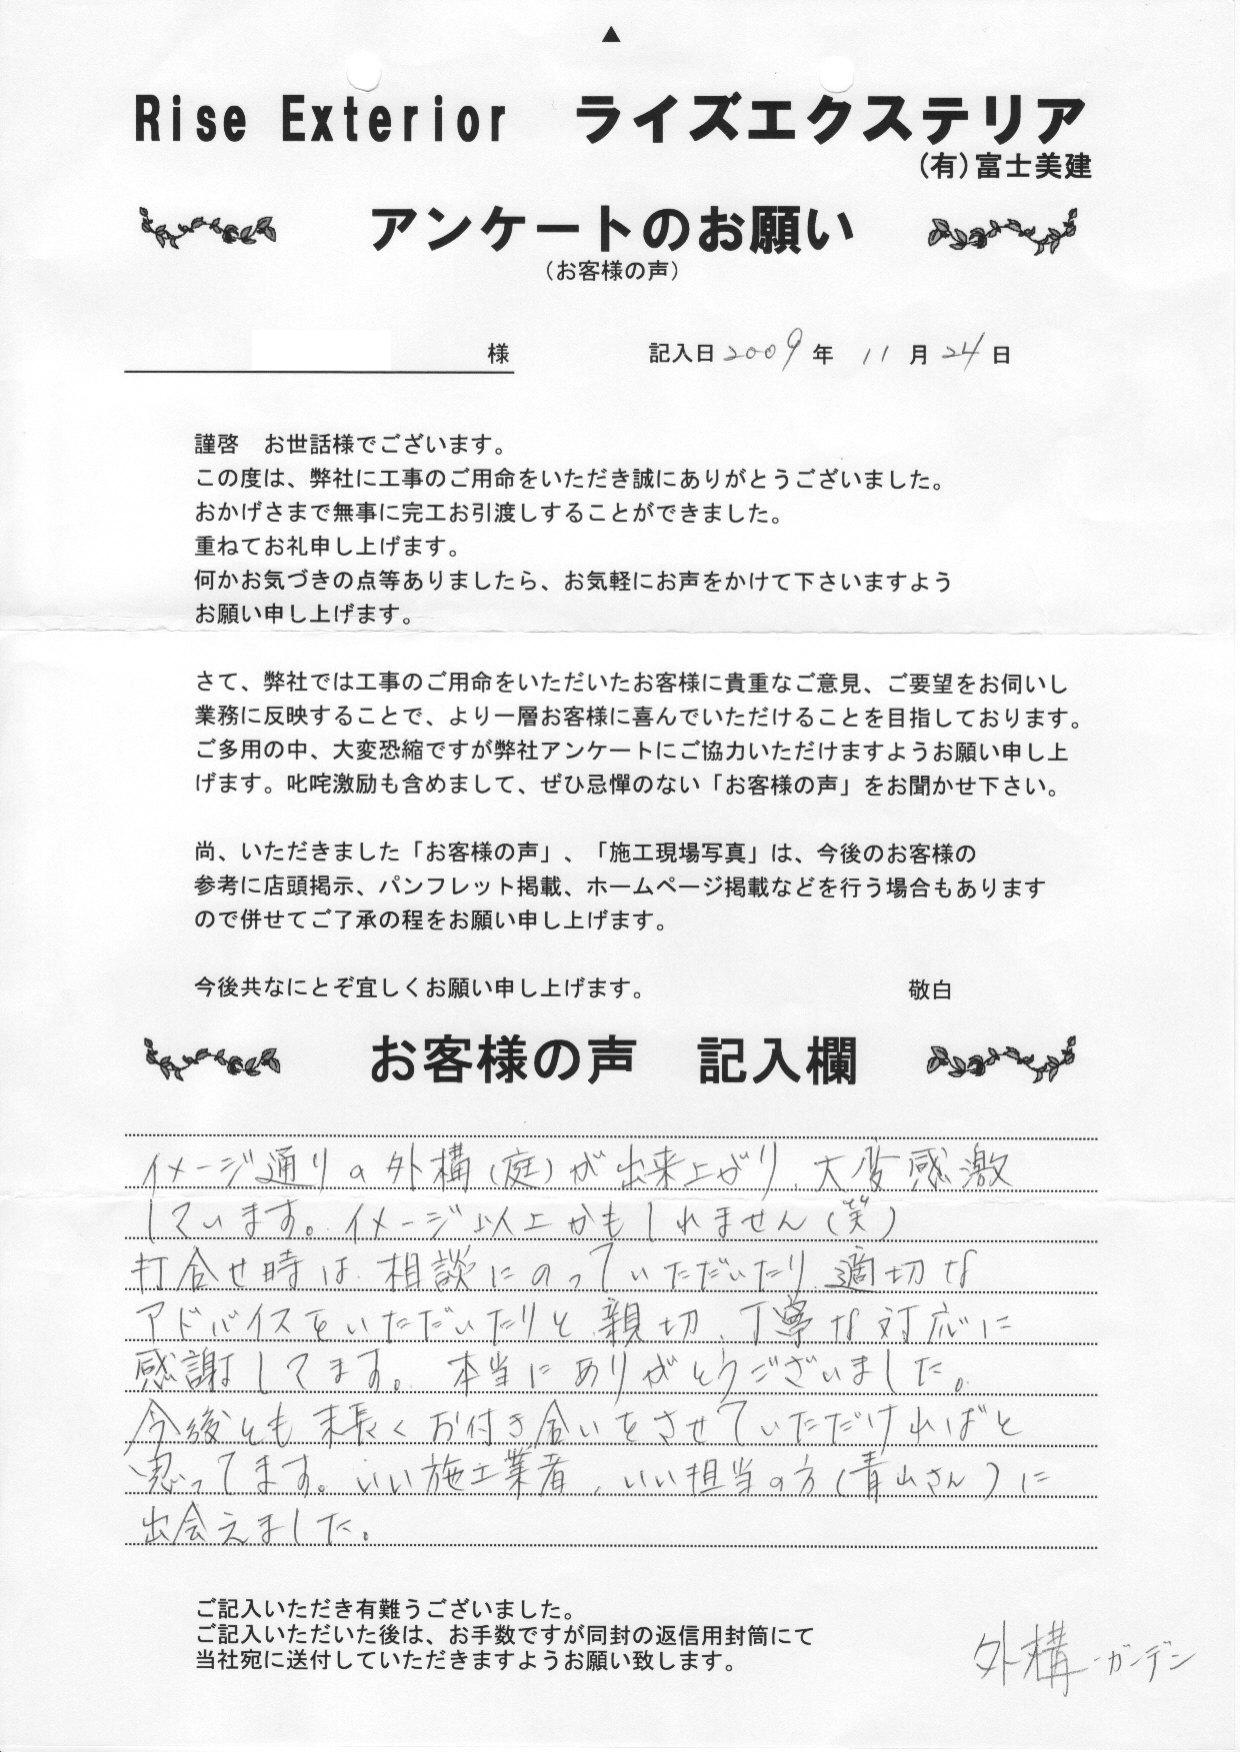 ▲
Rise Exterior ライズエクステリア
(有)富士美建
アンケートのお願い
(お客様の声)
様 記入日 2009 年 11 月 24 日
謹啓 お世話様でございます。
この度は、弊社に工事のご用命をいただき誠にありがとうございました。
おかげさまで無事に完工お引渡しすることができました。
重ねてお礼申し上げます。
何かお気づきの点等ありましたら、お気軽にお声をかけて下さいますよう
お願い申し上げます。
さて、弊社では工事のご用命をいただいたお客様に貴重なご意見、ご要望をお伺いし
業務に反映することで、より一層お客様に喜んでいただけることを目指しております。
ご多用の中、大変恐縮ですが弊社アンケートにご協力いただけますようお願い申し上
げます。叱咤激励も含めまして、ぜひ忌憚のない「お客様の声」をお聞かせ下さい。
尚、いただきました「お客様の声」、「施工現場写真」は、今後のお客様の
参考に店頭掲示、パンフレット掲載、ホームページ掲載などを行う場合もあります
ので併せてご了承の程をお願い申し上げます。
今後共なにとぞ宜しくお願い申し上げます。 敬白
お客様の声 記入欄
イメージ通りの外構(庭)が出来上がり、大変感激
しています。イメージ以上かもしれません(笑)
打合せ時は、相談にのっていただいたり、適切な
アドバイスをいただいたりと、親切、丁寧な対応に
感謝してます。本当にありがとうございました。
今後とも末長くお付き合いをさせていただければと
思ってます。いい施工業者、いい担当の方(青山さん)に
出会えました。
ご記入いただき有難うございました。
ご記入いただいた後は、お手数ですが同封の返信用封筒にて
当社宛に送付していただきますようお願い致します。
外構・ガーデン